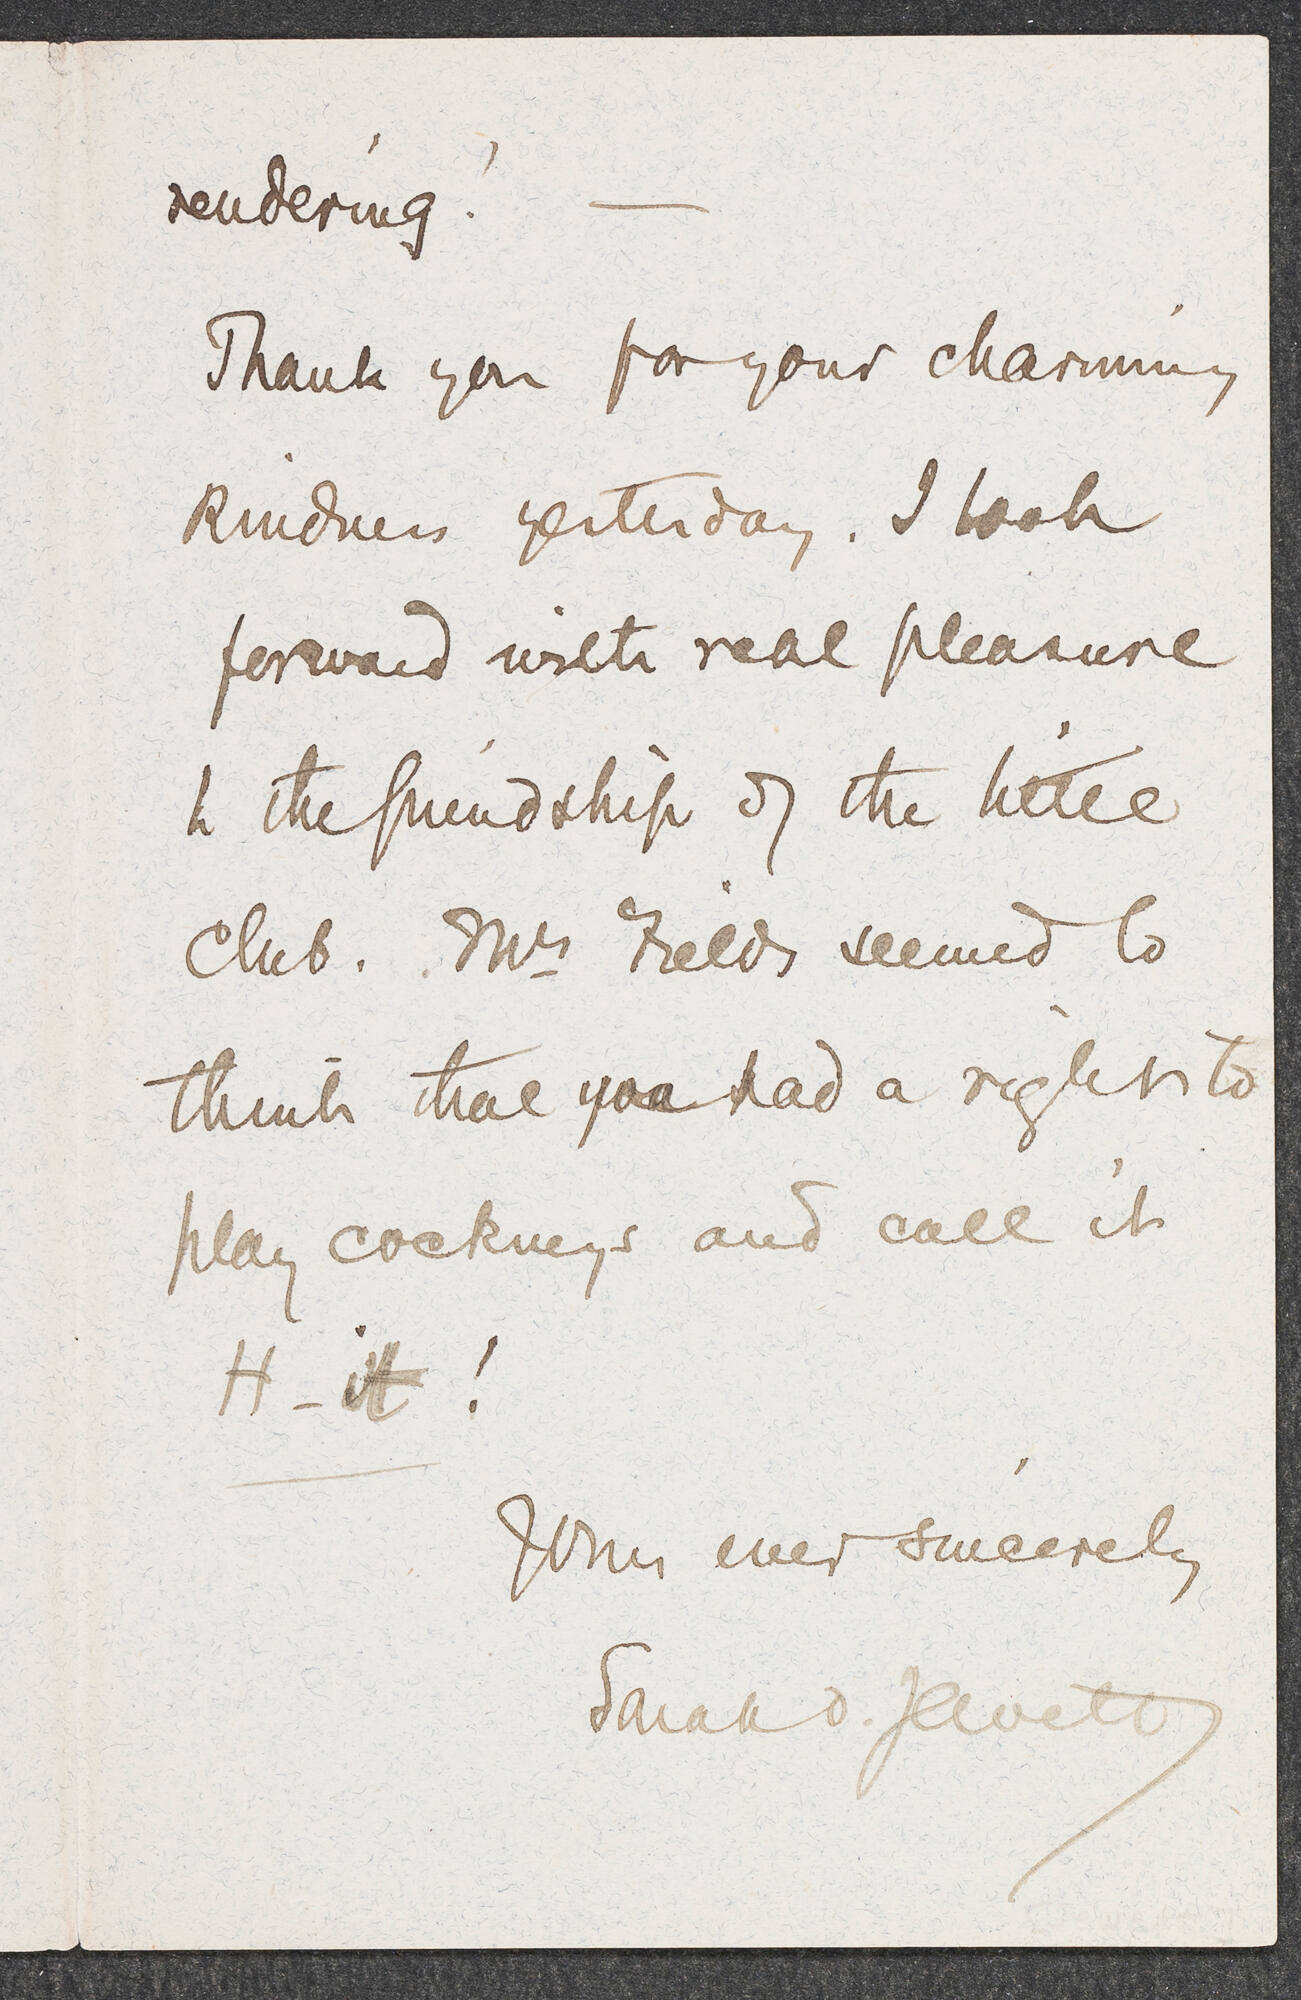 rendering! —
Thank you for your charming
kindness yesterday. I look
forward with real pleasure
to the friendship of the little
Club. Mrs Fields seemed to
think that you had a right to
play cockneys and call it
H-it!
Yours ever sincerely
Sarah O. Jewett